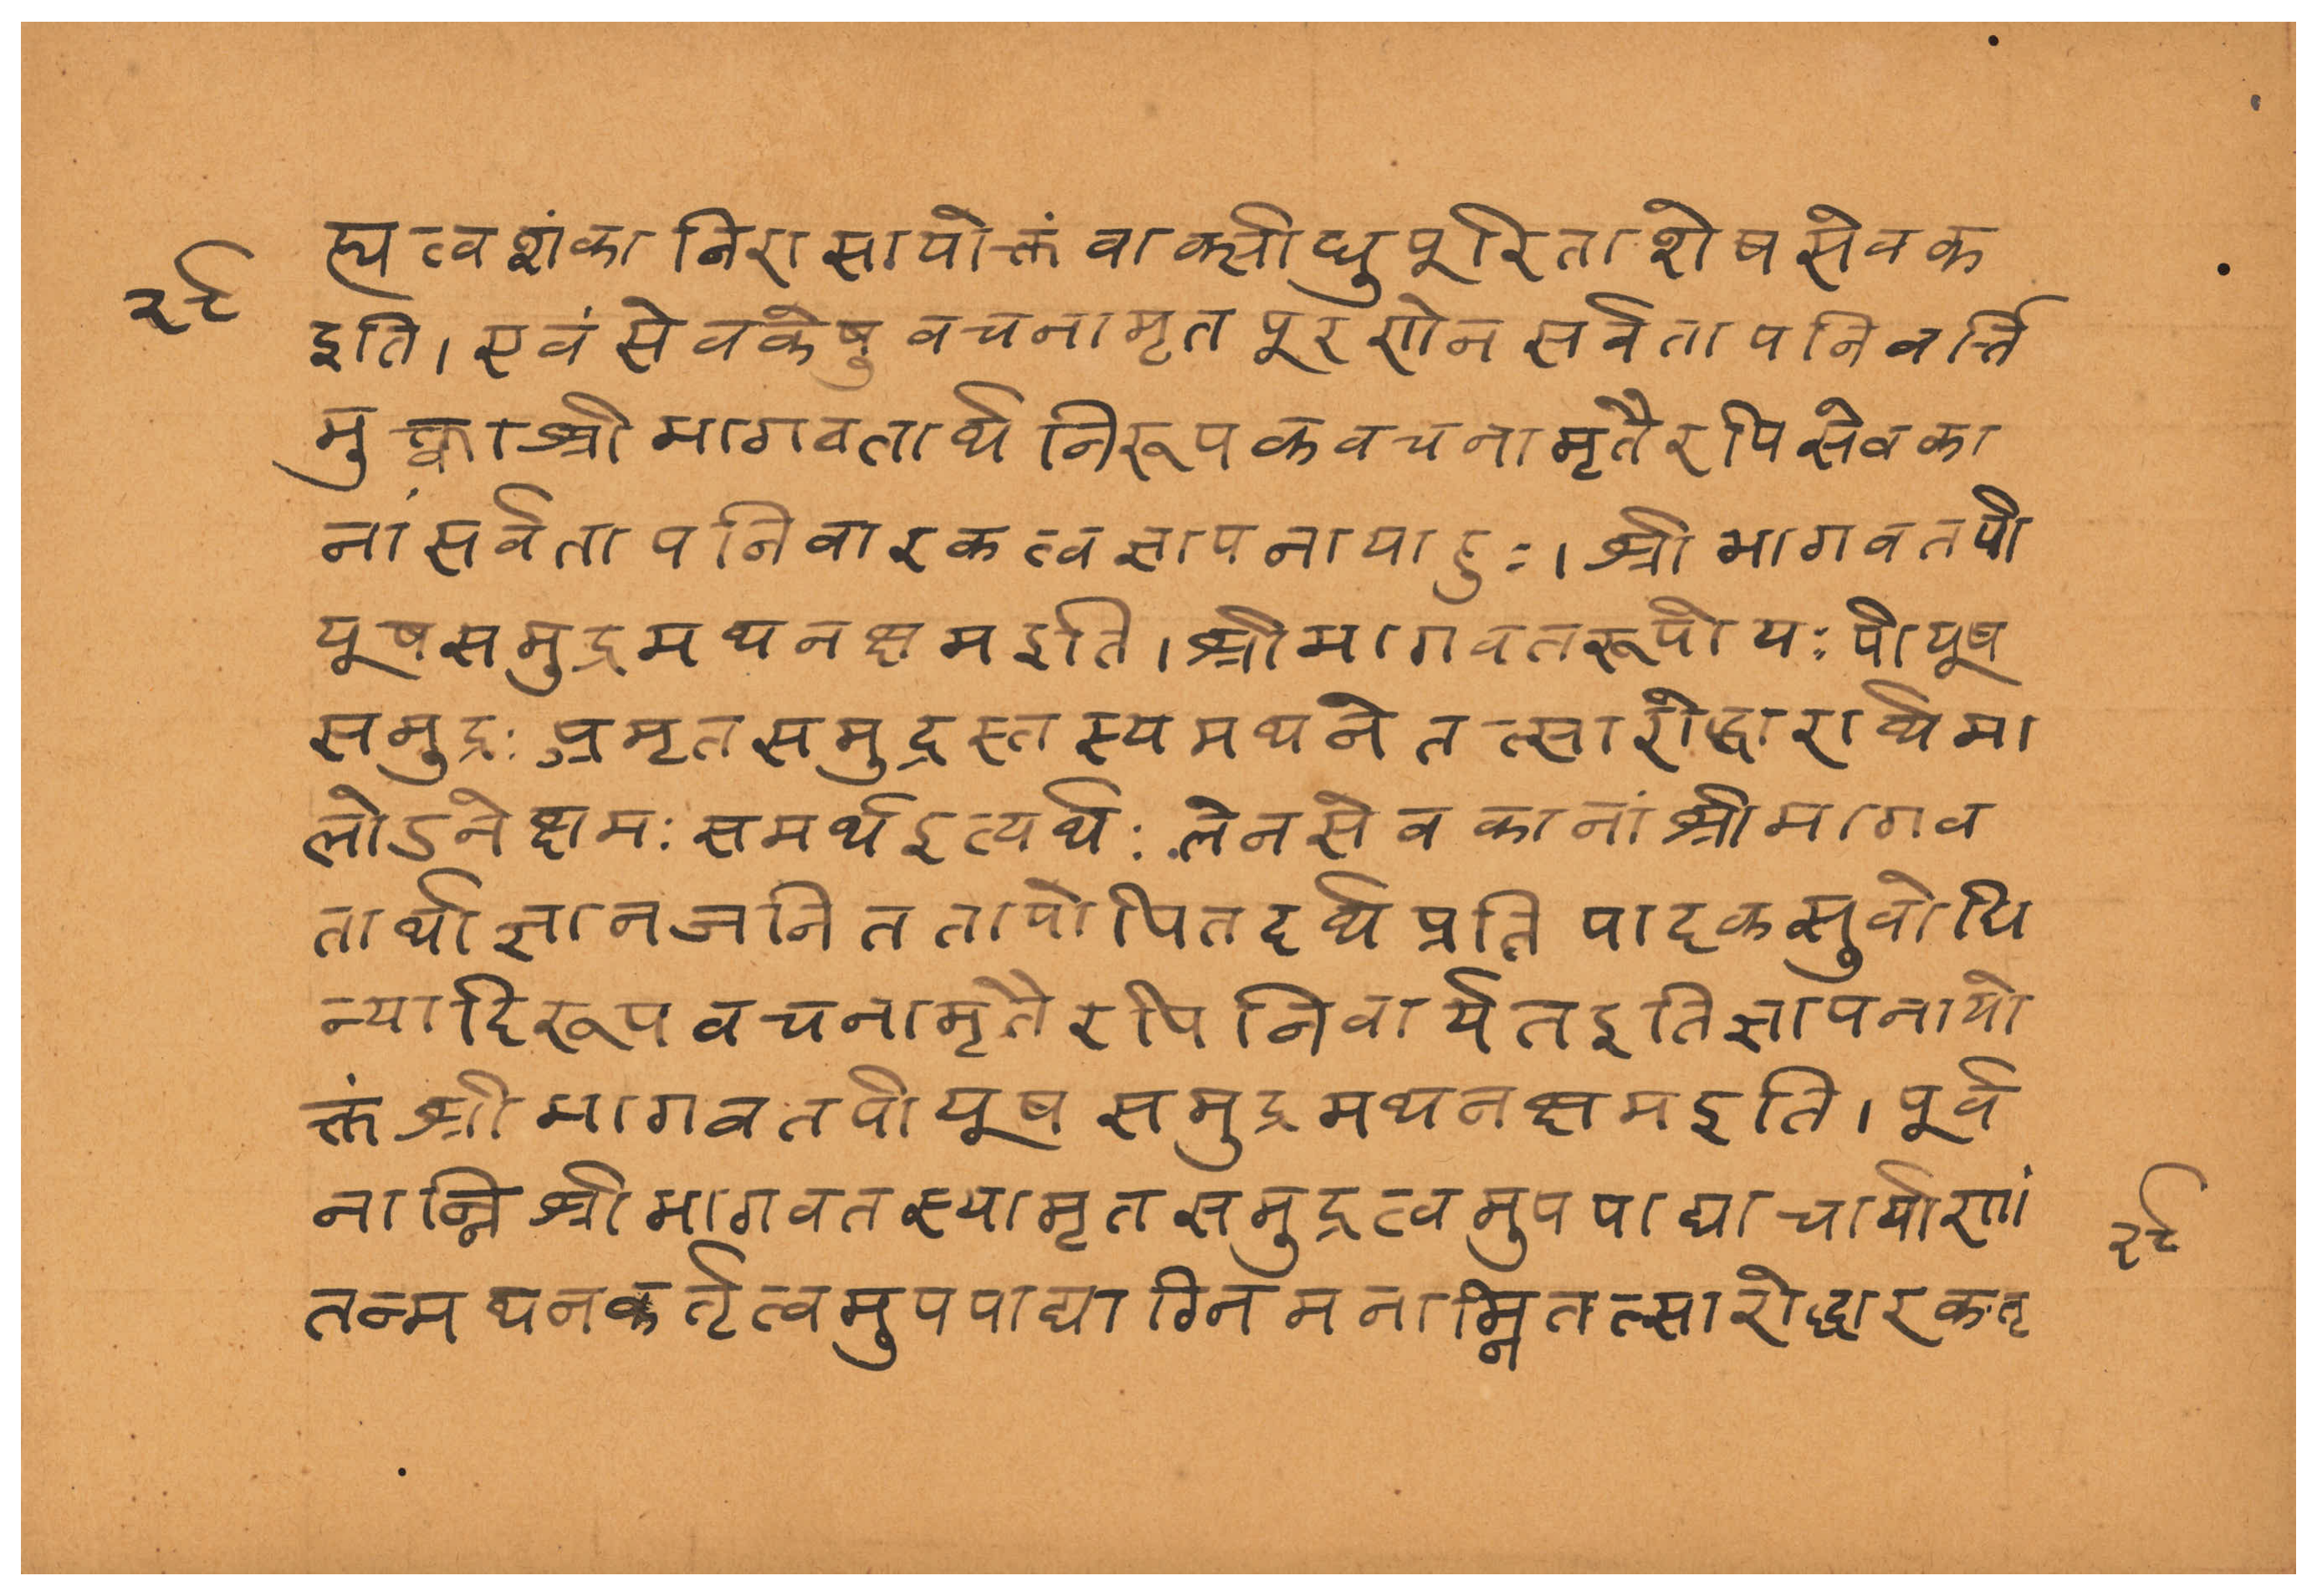 ह्यत्वशंकानिरासायोक्तं वाक्सीधुपूरिताशेषसेवक
२९
इति। एवं सेवकेषु वचनामृतपूरणेन सर्वतापनिवर्त्ति
मुक्त्वा श्रीभागवतार्थनिरूपकवचनामृतैरपि सेवका
नां सर्वतापनिवारकत्वज्ञापनायाहुः। श्रीभागवतपी
यूषसमुद्रमथनक्षम इति। श्रीभागवतरूपो यः पीयूष
समुद्रः अमृतसमुद्रस्तस्य मथने तत्सारोद्धारार्थमा
लोडने क्षमः समर्थ इत्यर्थः तेन सेवकानां श्रीभागव
तार्थाज्ञानजनिततापोपि तदर्थप्रतिपादकसुबोधि
न्यादिरूपवचनामृतैरपि निवार्यत इति ज्ञापनायो
क्तं श्रीभागवतपीयूषसमुद्रमथनक्षम इति। पूर्व
नाम्नि श्रीभागवतस्यामृतसमुद्रत्वमुपपाद्याचार्याणां
२९
तन्मथनकर्तृत्वमुपपाद्याग्निमनाम्नि तत्सारोद्धारकतृ